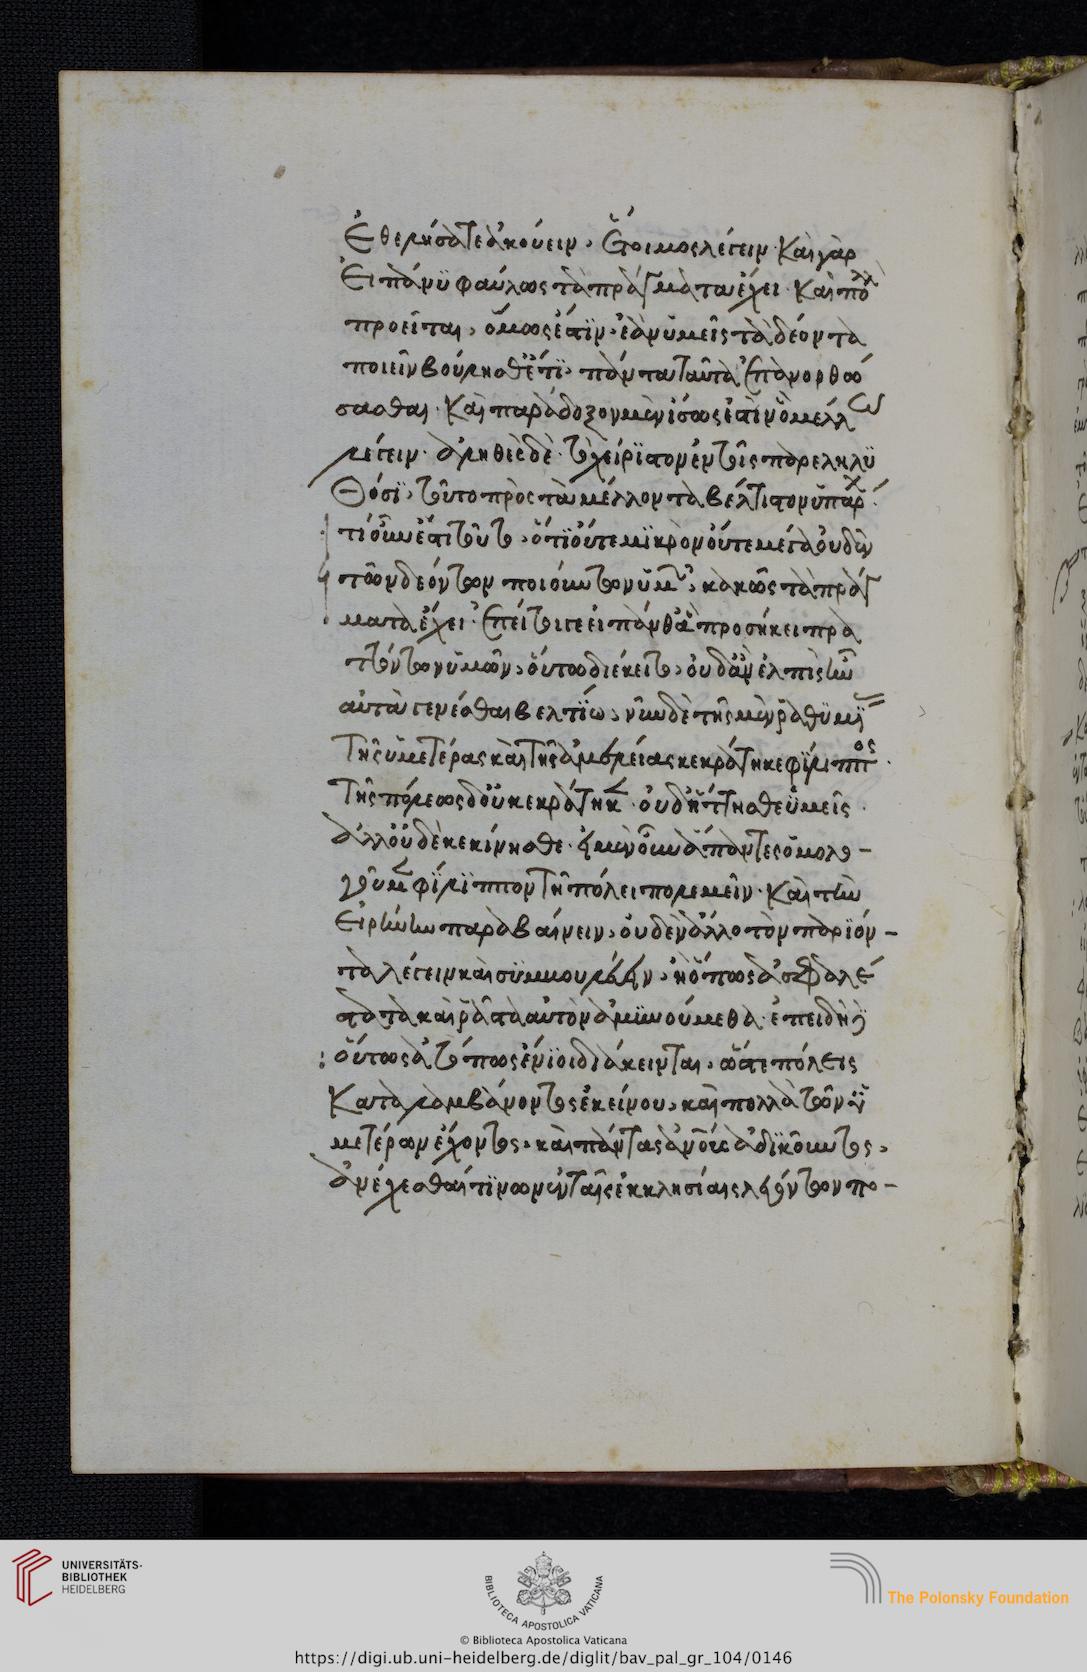 ἐθελήσατε ἀκούειν, ἕτοιμος λέγειν· καὶ γὰρ
εἰ πάνϋ φαύλως τὰ πράγματα ἔχει· καὶ πολλὰ
προεῖται, ὅμως ἔστιν· ἐὰν ὑμεῖς τὰ δέοντα
ποιεῖν βούλησθ' ἔτι, πάντα ταῦτα ἐπανορθώ
σασθαι· καὶ παράδοξον μὲν ἴσως ἐστὶν ὃ μέλλω
λέγειν· ἀληθὲς δὲ· τὸ χείριστον ἐν τοῖς παρεληλυ
θόσι, τοῦτο πρὸς τὰ μέλλοντα βέλτιστον ὑπάρχ
τί οὖν ἐστι τοῦτο, ὅτι οὔτε μικρὸν οὔτε μέγα οὐδὲν
τῶν δεόντων ποιούντων ὑμῶν, κακῶς τὰ πράγ
ματα ἔχει· ἐπεί τοι γε εἰ πάνθ' ἃ προσήκει πρα
τόντων ὑμῶν, οὕτω διέκειτο, οὐδ' ἂν ἐλπὶς ἦν
αὐτὰ γενέσθαι βελτίω, νῦν δὲ τῆς μὲν ῥαθυμίας
τῆς ὑμετέρας καὶ τῆς ἀμελείας κεκράτηκε φίλιππος·
τῆς πόλεως δ' οὐ κεκράτηκεν· οὐδ' ἥττησθε ὑμεῖς·
ἀλλ' οὐδὲ κεκίνησθε· εἰ μὲν οὖν ἅπαντες ὁμολο-
γοῦμεν φίλιππον τῇ πόλει πολεμεῖν· καὶ τὴν
εἰρήνην παραβαίνειν, οὐδὲν ἄλλο τὸν παριόν-
τα λέγειν καὶ συμβουλεύειν, ἢ ὅπως ἀσφαλέ
στατα καὶ ῥᾶστα αὐτὸν ἀμυνούμεθα· ἐπειδὴ δ'
οὕτως ἀτόπως ἔνιοι διάκεινται, ὥστε πόλεις
καταλαμβάνοντος ἐκείνου, καὶ πολλὰ τῶν ὑ
μετέρων ἔχοντος, καὶ πάντας ἀνθρώπους ἀδικοῦντος,
ἀνέχεσθαί τινων ἐν ταῖς ἐκκλησίαις λεγόντων πο-
UNIVERSITÄTS-
BIBLIOTHEK
HEIDELBERG
BIBLIOTECA APOSTOLICA VATICANA
The Polonsky Foundation
© Biblioteca Apostolica Vaticana
https://digi.ub.uni-heidelberg.de/diglit/bav_pal_gr_104/0146